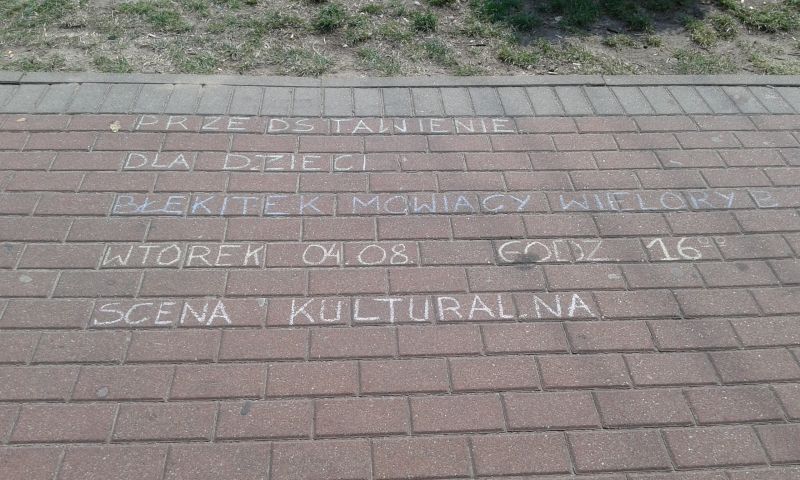 PRZEDSTAWIENIE
DLA DZIECI
BŁEKITEK MOWIĄCY WIELORYB
WTOREK 04.08. GODZ 16⁰⁰
SCENA KULTURALNA